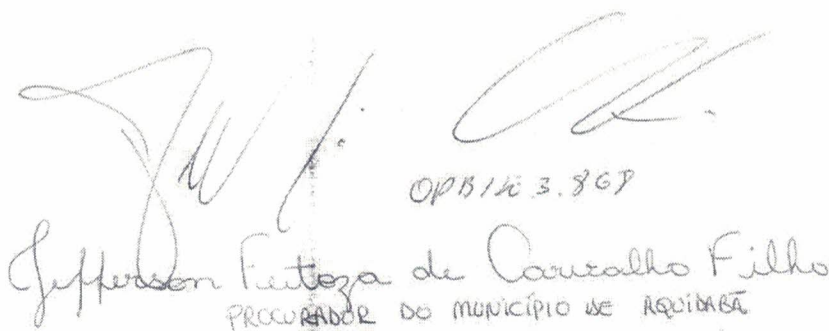 OAB/SE 3.868
Jefferson Feitoza de Carvalho Filho
PROCURADOR DO MUNICÍPIO DE AQUIDABÃ